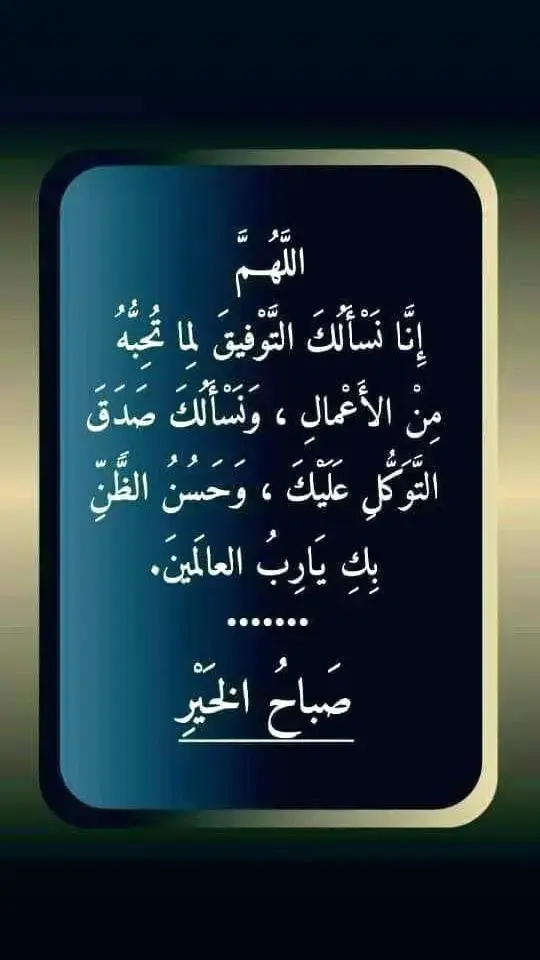 اللَّهُــمَّ
إِنَّا نَسْأَلُكَ التَّوْفيقَ لِما تُحِبُّهُ
مِنْ الأَعْمالِ ، وَنَسْأَلُكَ صَدَقَ
التَّوَكُّلِ عَلَيْكَ ، وَحَسُنُ الظَّنِّ
بِكِ يَارِبُ العالَمينَ.
.......
صَباحُ الخَيْرِ